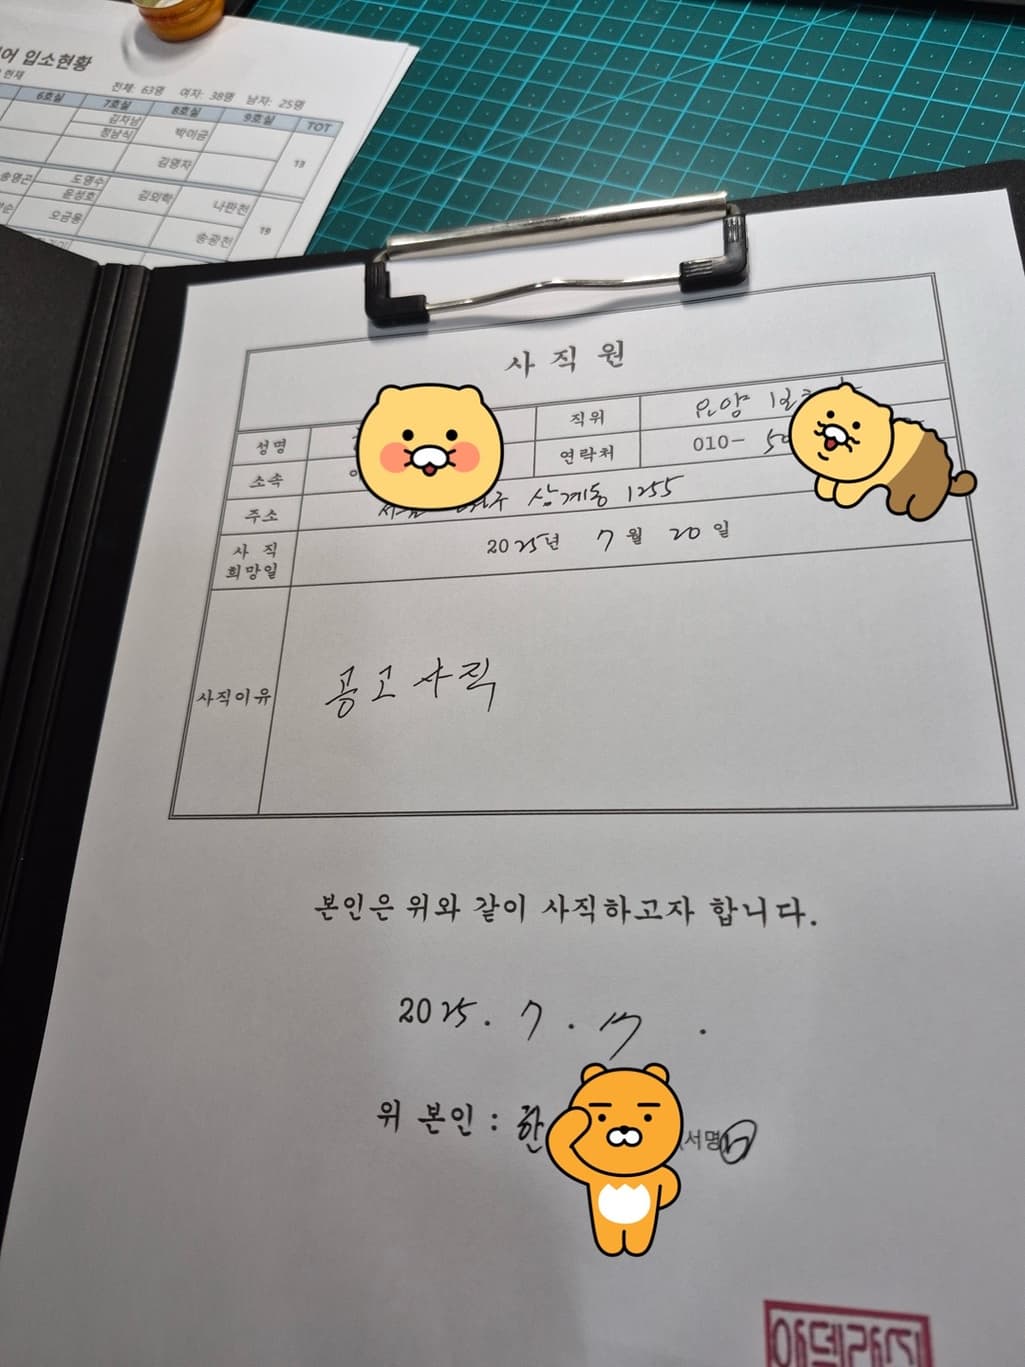 어 입소현황
현재
전체: 63명 여자: 38명 남자: 25명
6호실 7호실 8호실 9호실 TOT
김차남
정남식 박이금
김명자 13
송명곤 도명수
윤성호 김외학 나판천
오금용 송광천 19
사 직 원
성명 직위 요양
소속 연락처 010- 50
주소 상계동 1255
사 직
희망일 2025년 7월 20일
사직이유 공고사직
본인은 위와 같이 사직하고자 합니다.
2025. 7. 17.
위 본인 : 한 (서명)